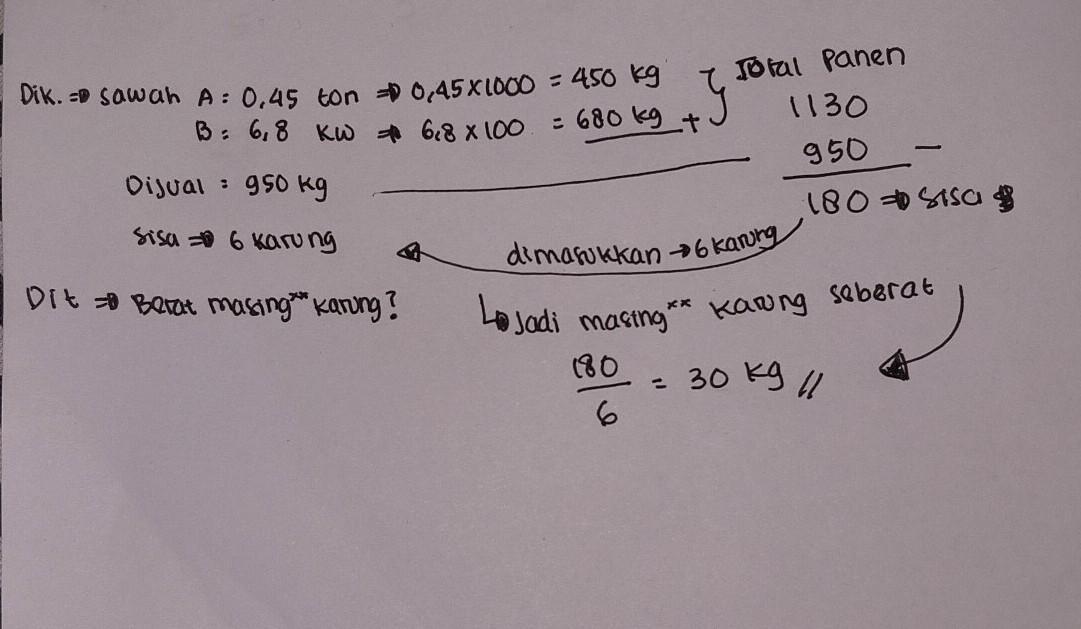 Dik. => sawah A : 0,45 ton => 0,45x1000 = 450 kg } Total Panen
B : 6,8 kw => 6,8 x 100 = 680 kg + 1130
950 -
Disual : 950 kg
180 => sisa
sisa => 6 karung
dimasukkan → 6 karung
Dit => Berat masing** karung?
↳ Jadi masing** karung seberat
180
= 30 kg //
6